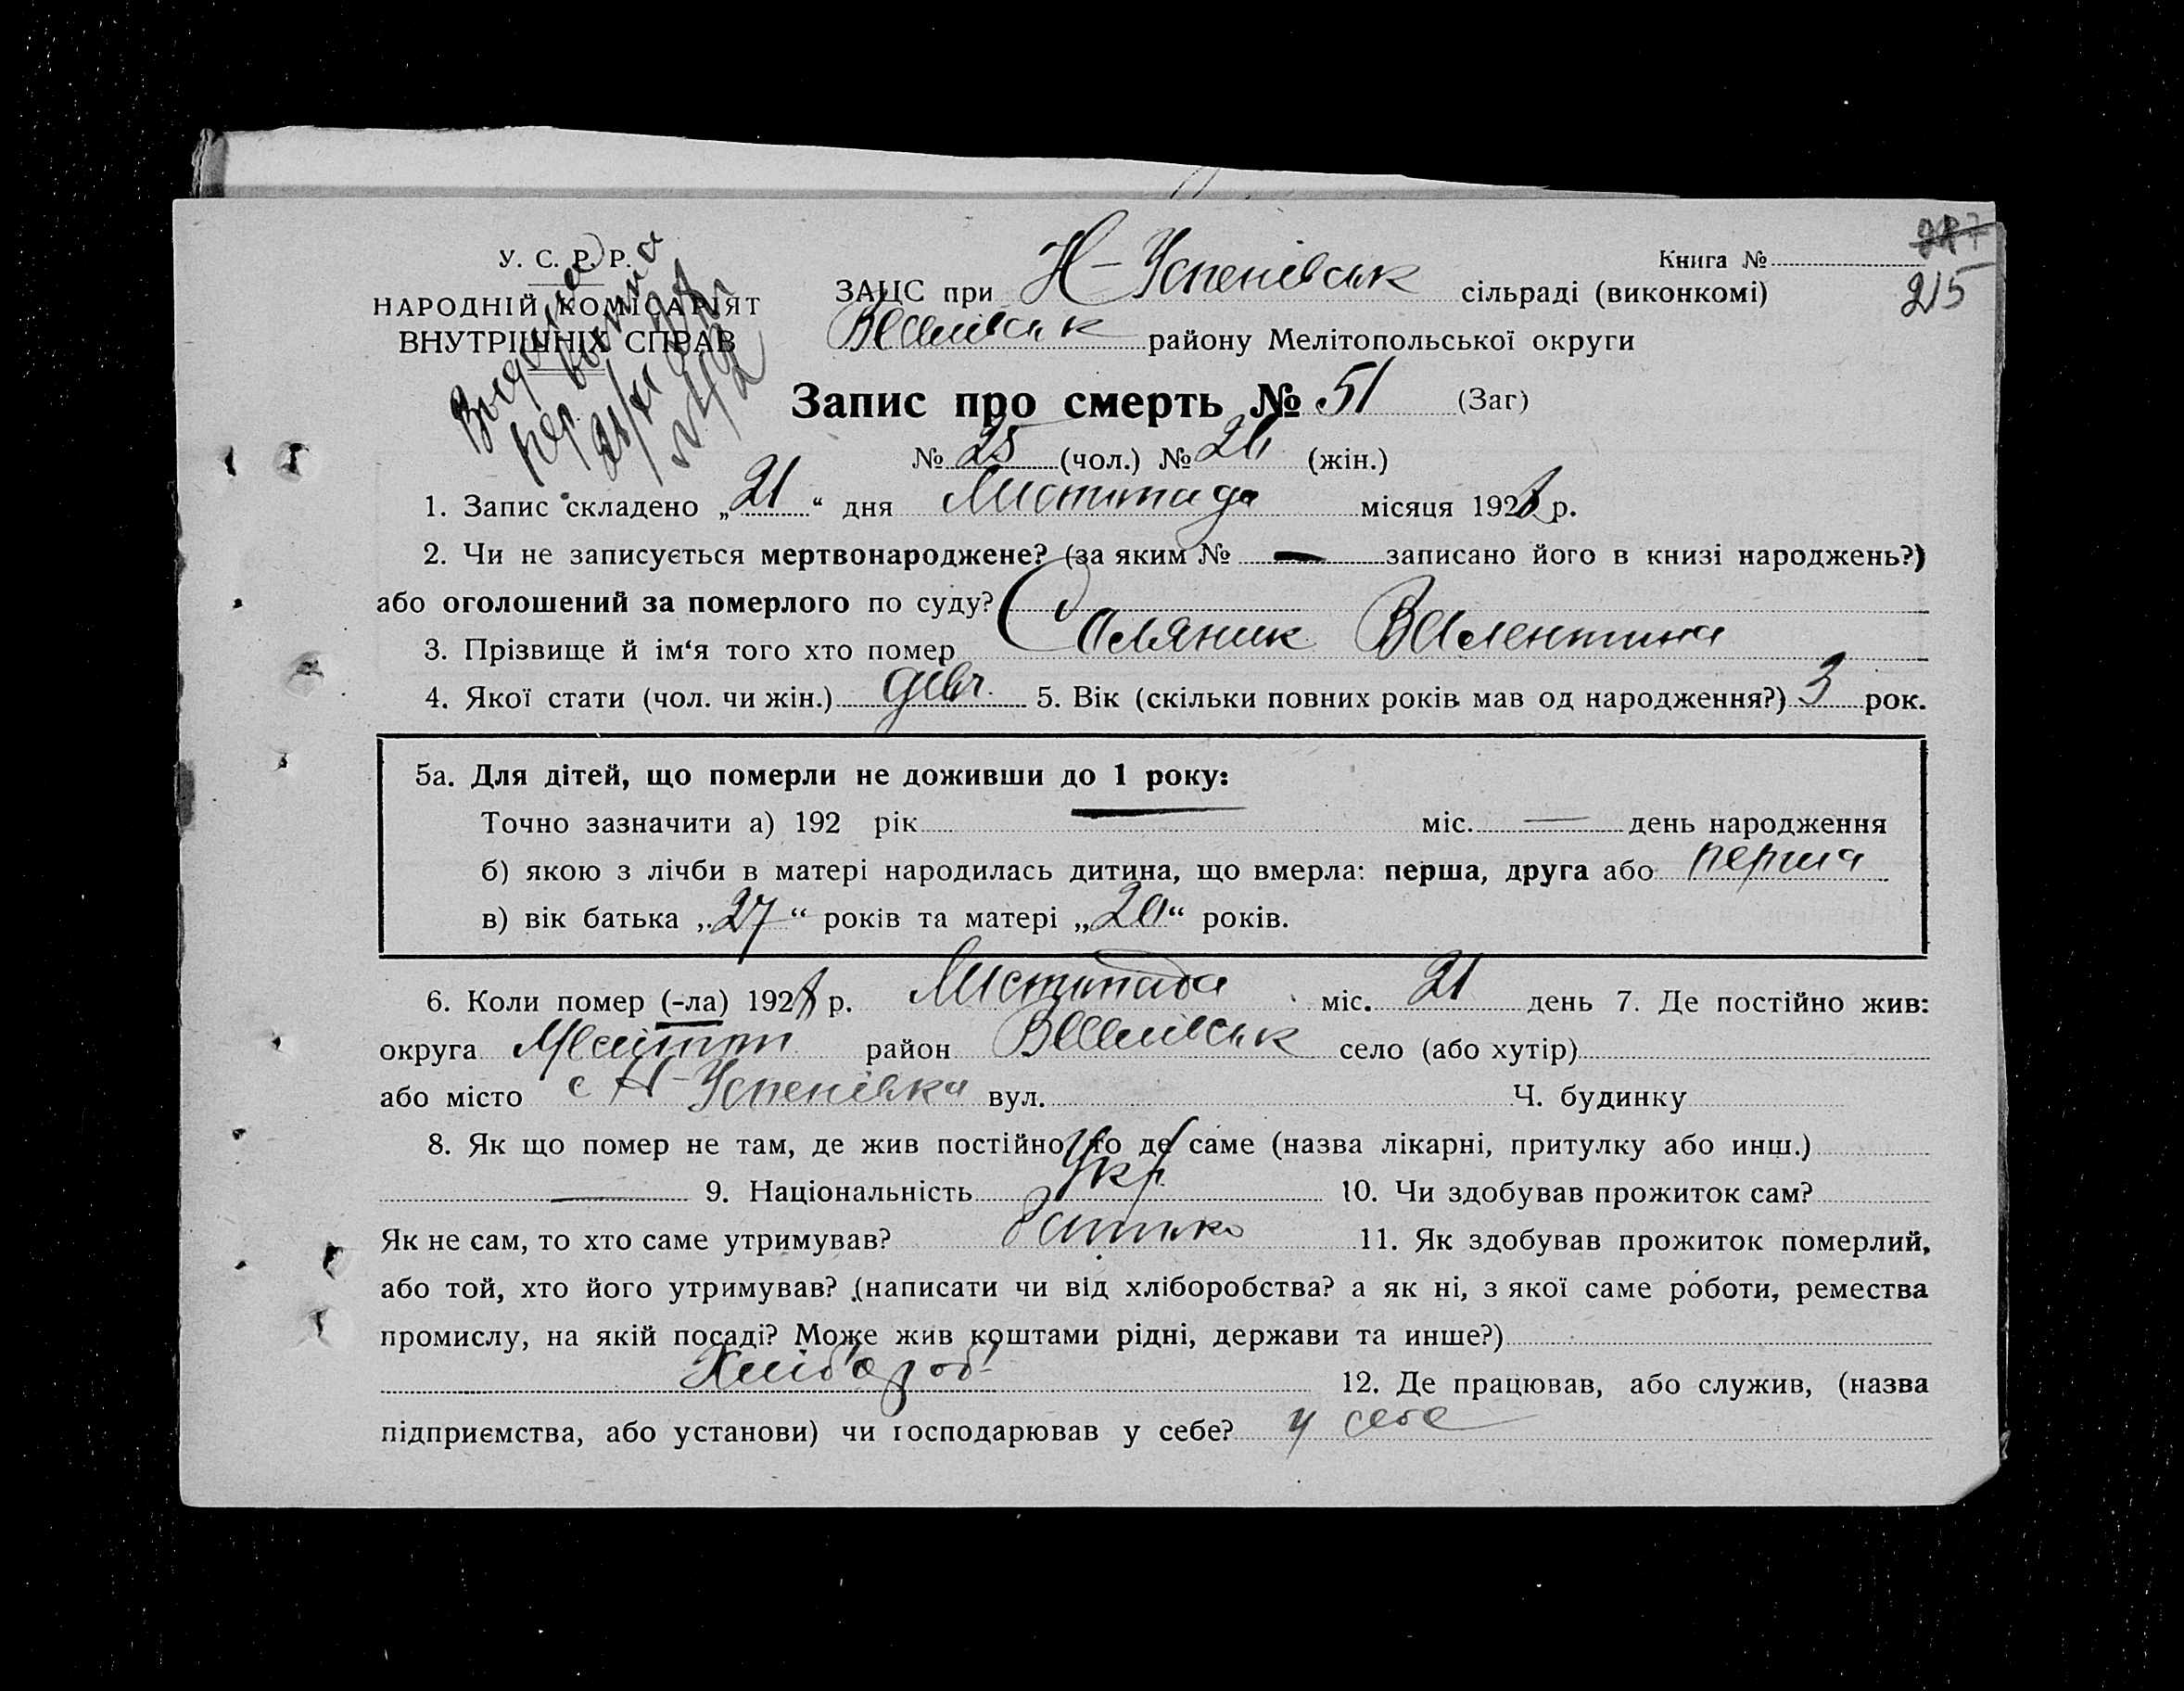 У. С. Р. Р.
НАРОДНІЙ КОМІСАРІЯТ
ВНУТРІШНІХ СПРАВ
Книга №
215
ЗАЦС при Н-Успенівськ сільраді (виконкомі)
Веселівськ району Мелітопольської округи
Запис про смерть № 51 (Заг)
№ 25 (чол.) № 26 (жін.)
1. Запис складено „21“ дня Листопада місяця 1928 р.
2. Чи не записується мертвонароджене? (за яким № — записано його в книзі народжень?)
або оголошений за померлого по суду?
3. Прізвище й ім‘я того хто помер Соляник Валентина
4. Якої стати (чол. чи жін.) дівч. 5. Вік (скільки повних років мав од народження?) 3 рок.
5а. Для дітей, що померли не доживши до 1 року:
Точно зазначити а) 192 рік — міс. — день народження
б) якою з лічби в матері народилась дитина, що вмерла: перша, друга або перша
в) вік батька „27“ років та матері „20“ років.
6. Коли помер (-ла) 1928 р. Листопада міс. 21 день 7. Де постійно жив:
округа Мелітоп район Веселівськ село (або хутір)
або місто с Н-Успенівка вул. Ч. будинку
8. Як що помер не там, де жив постійно, то де саме (назва лікарні, притулку або инш.)
— 9. Національність Укр. 10. Чи здобував прожиток сам?
Як не сам, то хто саме утримував? батько 11. Як здобував прожиток померлий,
або той, хто його утримував? (написати чи від хліборобства? а як ні, з якої саме роботи, ремества
промислу, на якій посаді? Може жив коштами рідні, держави та инше?)
Хлібороб 12. Де працював, або служив, (назва
підприємства, або установи) чи господарював у себе? у себе